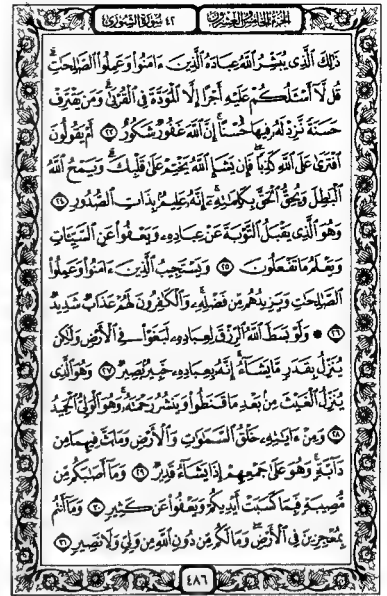 الجزء الخامس والعشرون
٤٢ سورة الشورى
ذَٰلِكَ ٱلَّذِى يُبَشِّرُ ٱللَّهُ عِبَادَهُ ٱلَّذِينَ ءَامَنُوا۟ وَعَمِلُوا۟ ٱلصَّـٰلِحَـٰتِ ۗ
قُل لَّآ أَسْـَٔلُكُمْ عَلَيْهِ أَجْرًا إِلَّا ٱلْمَوَدَّةَ فِى ٱلْقُرْبَىٰ ۗ وَمَن يَقْتَرِفْ
حَسَنَةً نَّزِدْ لَهُۥ فِيهَا حُسْنًا ۚ إِنَّ ٱللَّهَ غَفُورٌ شَكُورٌ ٢٣ أَمْ يَقُولُونَ
ٱفْتَرَىٰ عَلَى ٱللَّهِ كَذِبًا ۖ فَإِن يَشَإِ ٱللَّهُ يَخْتِمْ عَلَىٰ قَلْبِكَ ۗ وَيَمْحُ ٱللَّهُ
ٱلْبَـٰطِلَ وَيُحِقُّ ٱلْحَقَّ بِكَلِمَـٰتِهِۦٓ ۚ إِنَّهُۥ عَلِيمٌۢ بِذَاتِ ٱلصُّدُورِ ٢٤
وَهُوَ ٱلَّذِى يَقْبَلُ ٱلتَّوْبَةَ عَنْ عِبَادِهِۦ وَيَعْفُوا۟ عَنِ ٱلسَّيِّـَٔاتِ
وَيَعْلَمُ مَا تَفْعَلُونَ ٢٥ وَيَسْتَجِيبُ ٱلَّذِينَ ءَامَنُوا۟ وَعَمِلُوا۟
ٱلصَّـٰلِحَـٰتِ وَيَزِيدُهُم مِّن فَضْلِهِۦ ۚ وَٱلْكَـٰفِرُونَ لَهُمْ عَذَابٌ شَدِيدٌ
٢٦ ۞ وَلَوْ بَسَطَ ٱللَّهُ ٱلرِّزْقَ لِعِبَادِهِۦ لَبَغَوْا۟ فِى ٱلْأَرْضِ وَلَـٰكِن
يُنَزِّلُ بِقَدَرٍ مَّا يَشَآءُ ۚ إِنَّهُۥ بِعِبَادِهِۦ خَبِيرٌۢ بَصِيرٌ ٢٧ وَهُوَ ٱلَّذِى
يُنَزِّلُ ٱلْغَيْثَ مِنۢ بَعْدِ مَا قَنَطُوا۟ وَيَنشُرُ رَحْمَتَهُۥ ۚ وَهُوَ ٱلْوَلِىُّ ٱلْحَمِيدُ
٢٨ وَمِنْ ءَايَـٰتِهِۦ خَلْقُ ٱلسَّمَـٰوَٰتِ وَٱلْأَرْضِ وَمَا بَثَّ فِيهِمَا مِن
دَآبَّةٍ ۚ وَهُوَ عَلَىٰ جَمْعِهِمْ إِذَا يَشَآءُ قَدِيرٌ ٢٩ وَمَآ أَصَـٰبَكُم مِّن
مُّصِيبَةٍ فَبِمَا كَسَبَتْ أَيْدِيكُمْ وَيَعْفُوا۟ عَن كَثِيرٍ ٣٠ وَمَآ أَنتُم
بِمُعْجِزِينَ فِى ٱلْأَرْضِ ۖ وَمَا لَكُم مِّن دُونِ ٱللَّهِ مِن وَلِىٍّ وَلَا نَصِيرٍ ٣١
٤٨٦